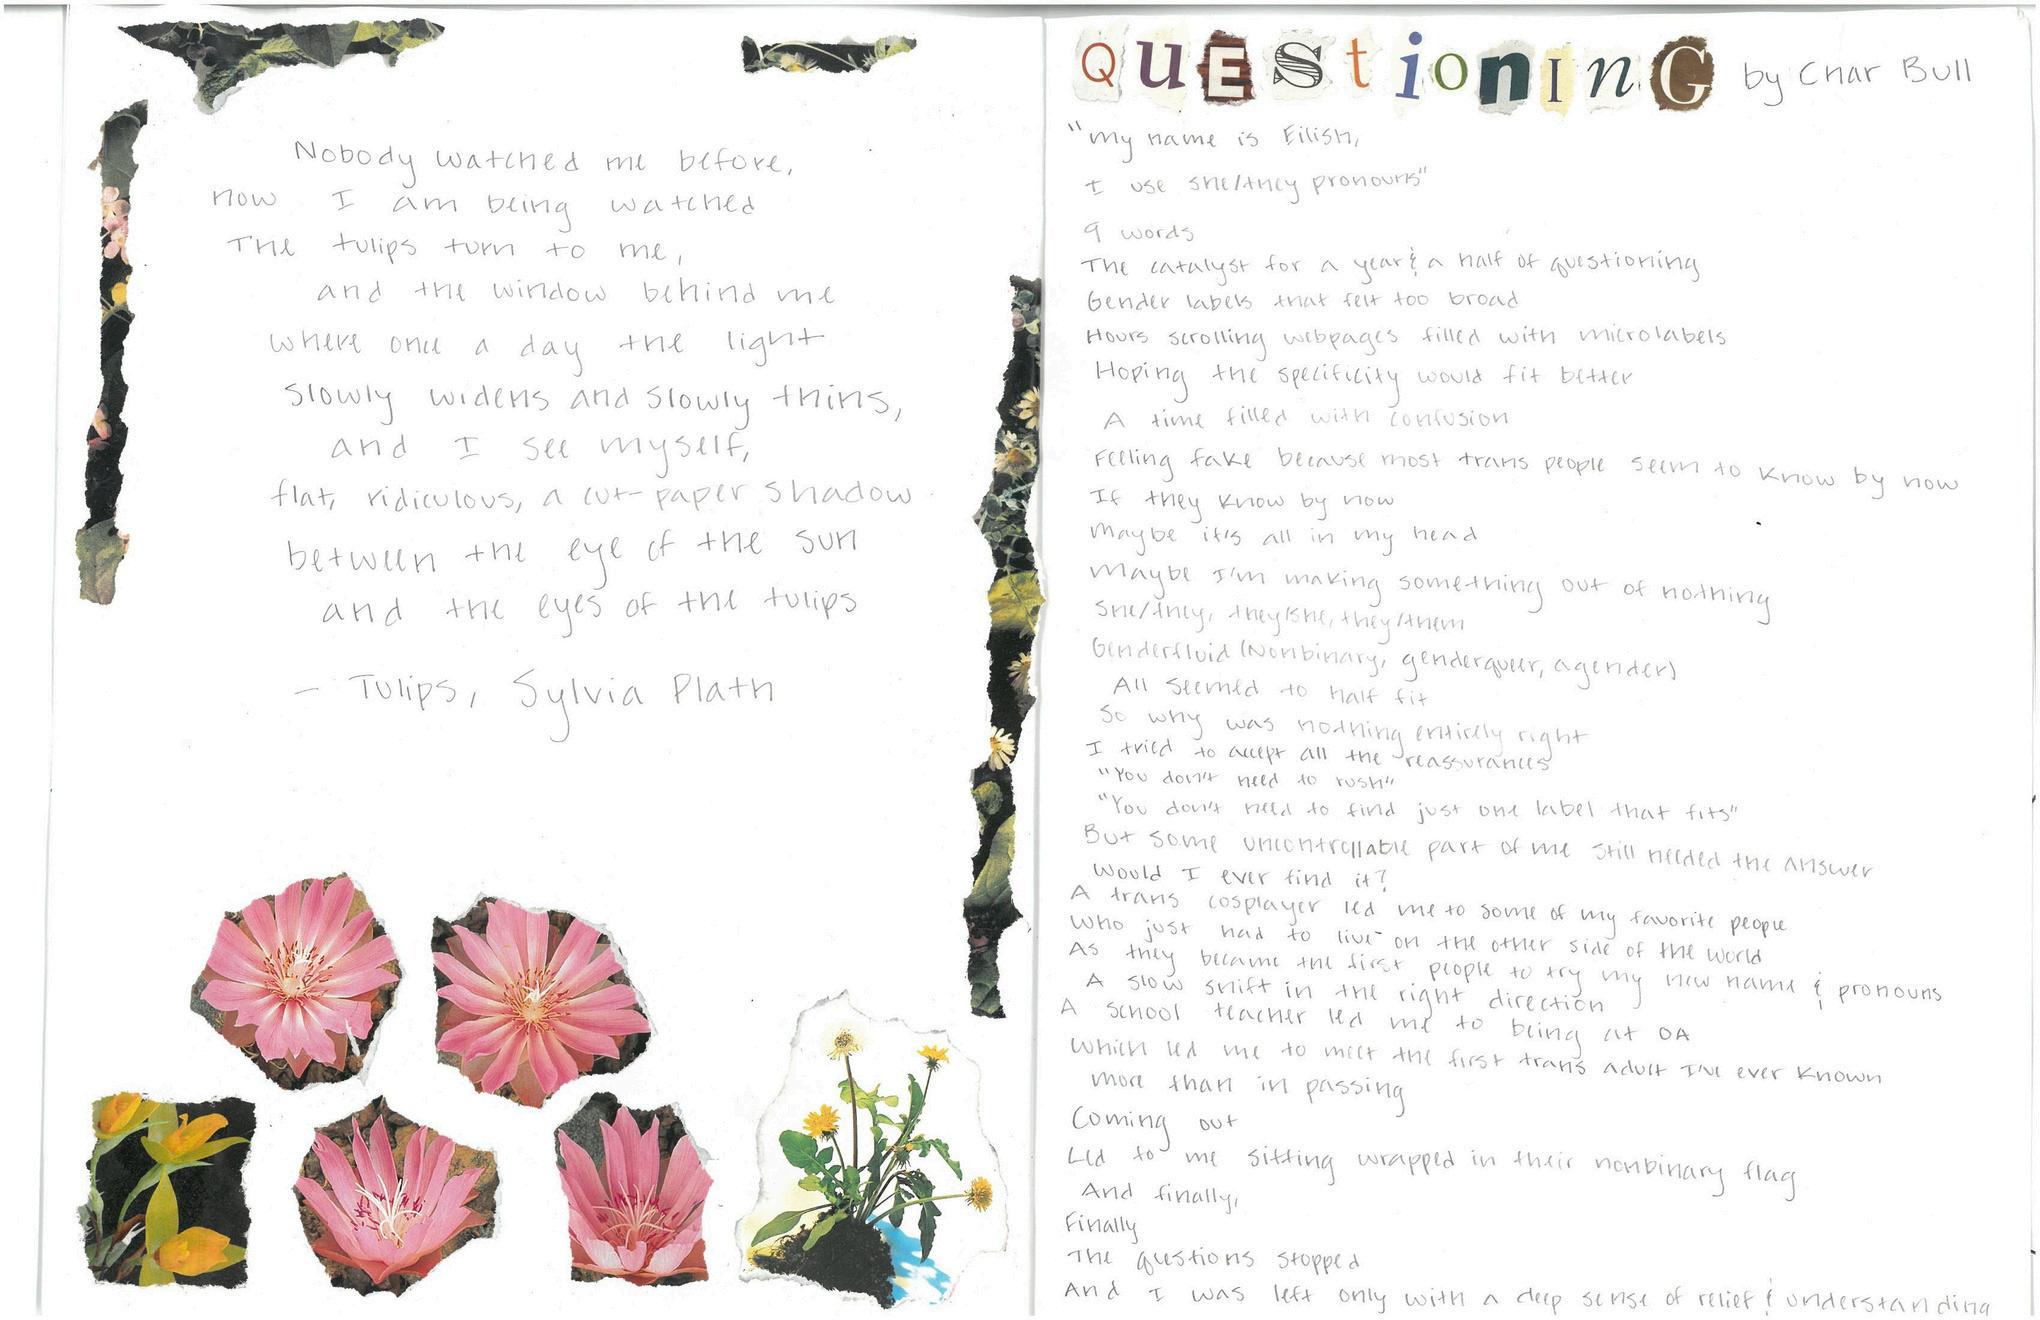 Nobody watched me before,
now I am being watched
The tulips turn to me,
and the window behind me
where once a day the light
slowly widens and slowly thins,
and I see myself,
flat, ridiculous, a cut-paper shadow
between the eye of the sun
and the eyes of the tulips
- Tulips, Sylvia Plath
QUESTIONING by Char Bull
"My name is Eilish,
I use she/they pronouns"
9 words
The catalyst for a year & a half of questioning
Gender labels that felt too broad
Hours scrolling webpages filled with microlabels
Hoping the specificity would fit better
A time filled with confusion
Feeling fake because most trans people seem to know by now
If they know by now
Maybe it's all in my head
Maybe I'm making something out of nothing
She/they, they/she, they/them
Genderfluid (Nonbinary, genderqueer, agender)
All seemed to half fit
So why was nothing entirely right
I tried to accept all the reassurances
"You don't need to rush"
"You don't need to find just one label that fits"
But some uncontrollable part of me still needed the answer
Would I ever find it?
A trans cosplayer led me to some of my favorite people
Who just had to live on the other side of the world
As they became the first people to try my new name & pronouns
A slow shift in the right direction
A school teacher led me to being at OA
Which led me to meet the first trans adult I've ever known
more than in passing
Coming out
Led to me sitting wrapped in their nonbinary flag
And finally,
Finally
The questions stopped
And I was left only with a deep sense of relief & understanding